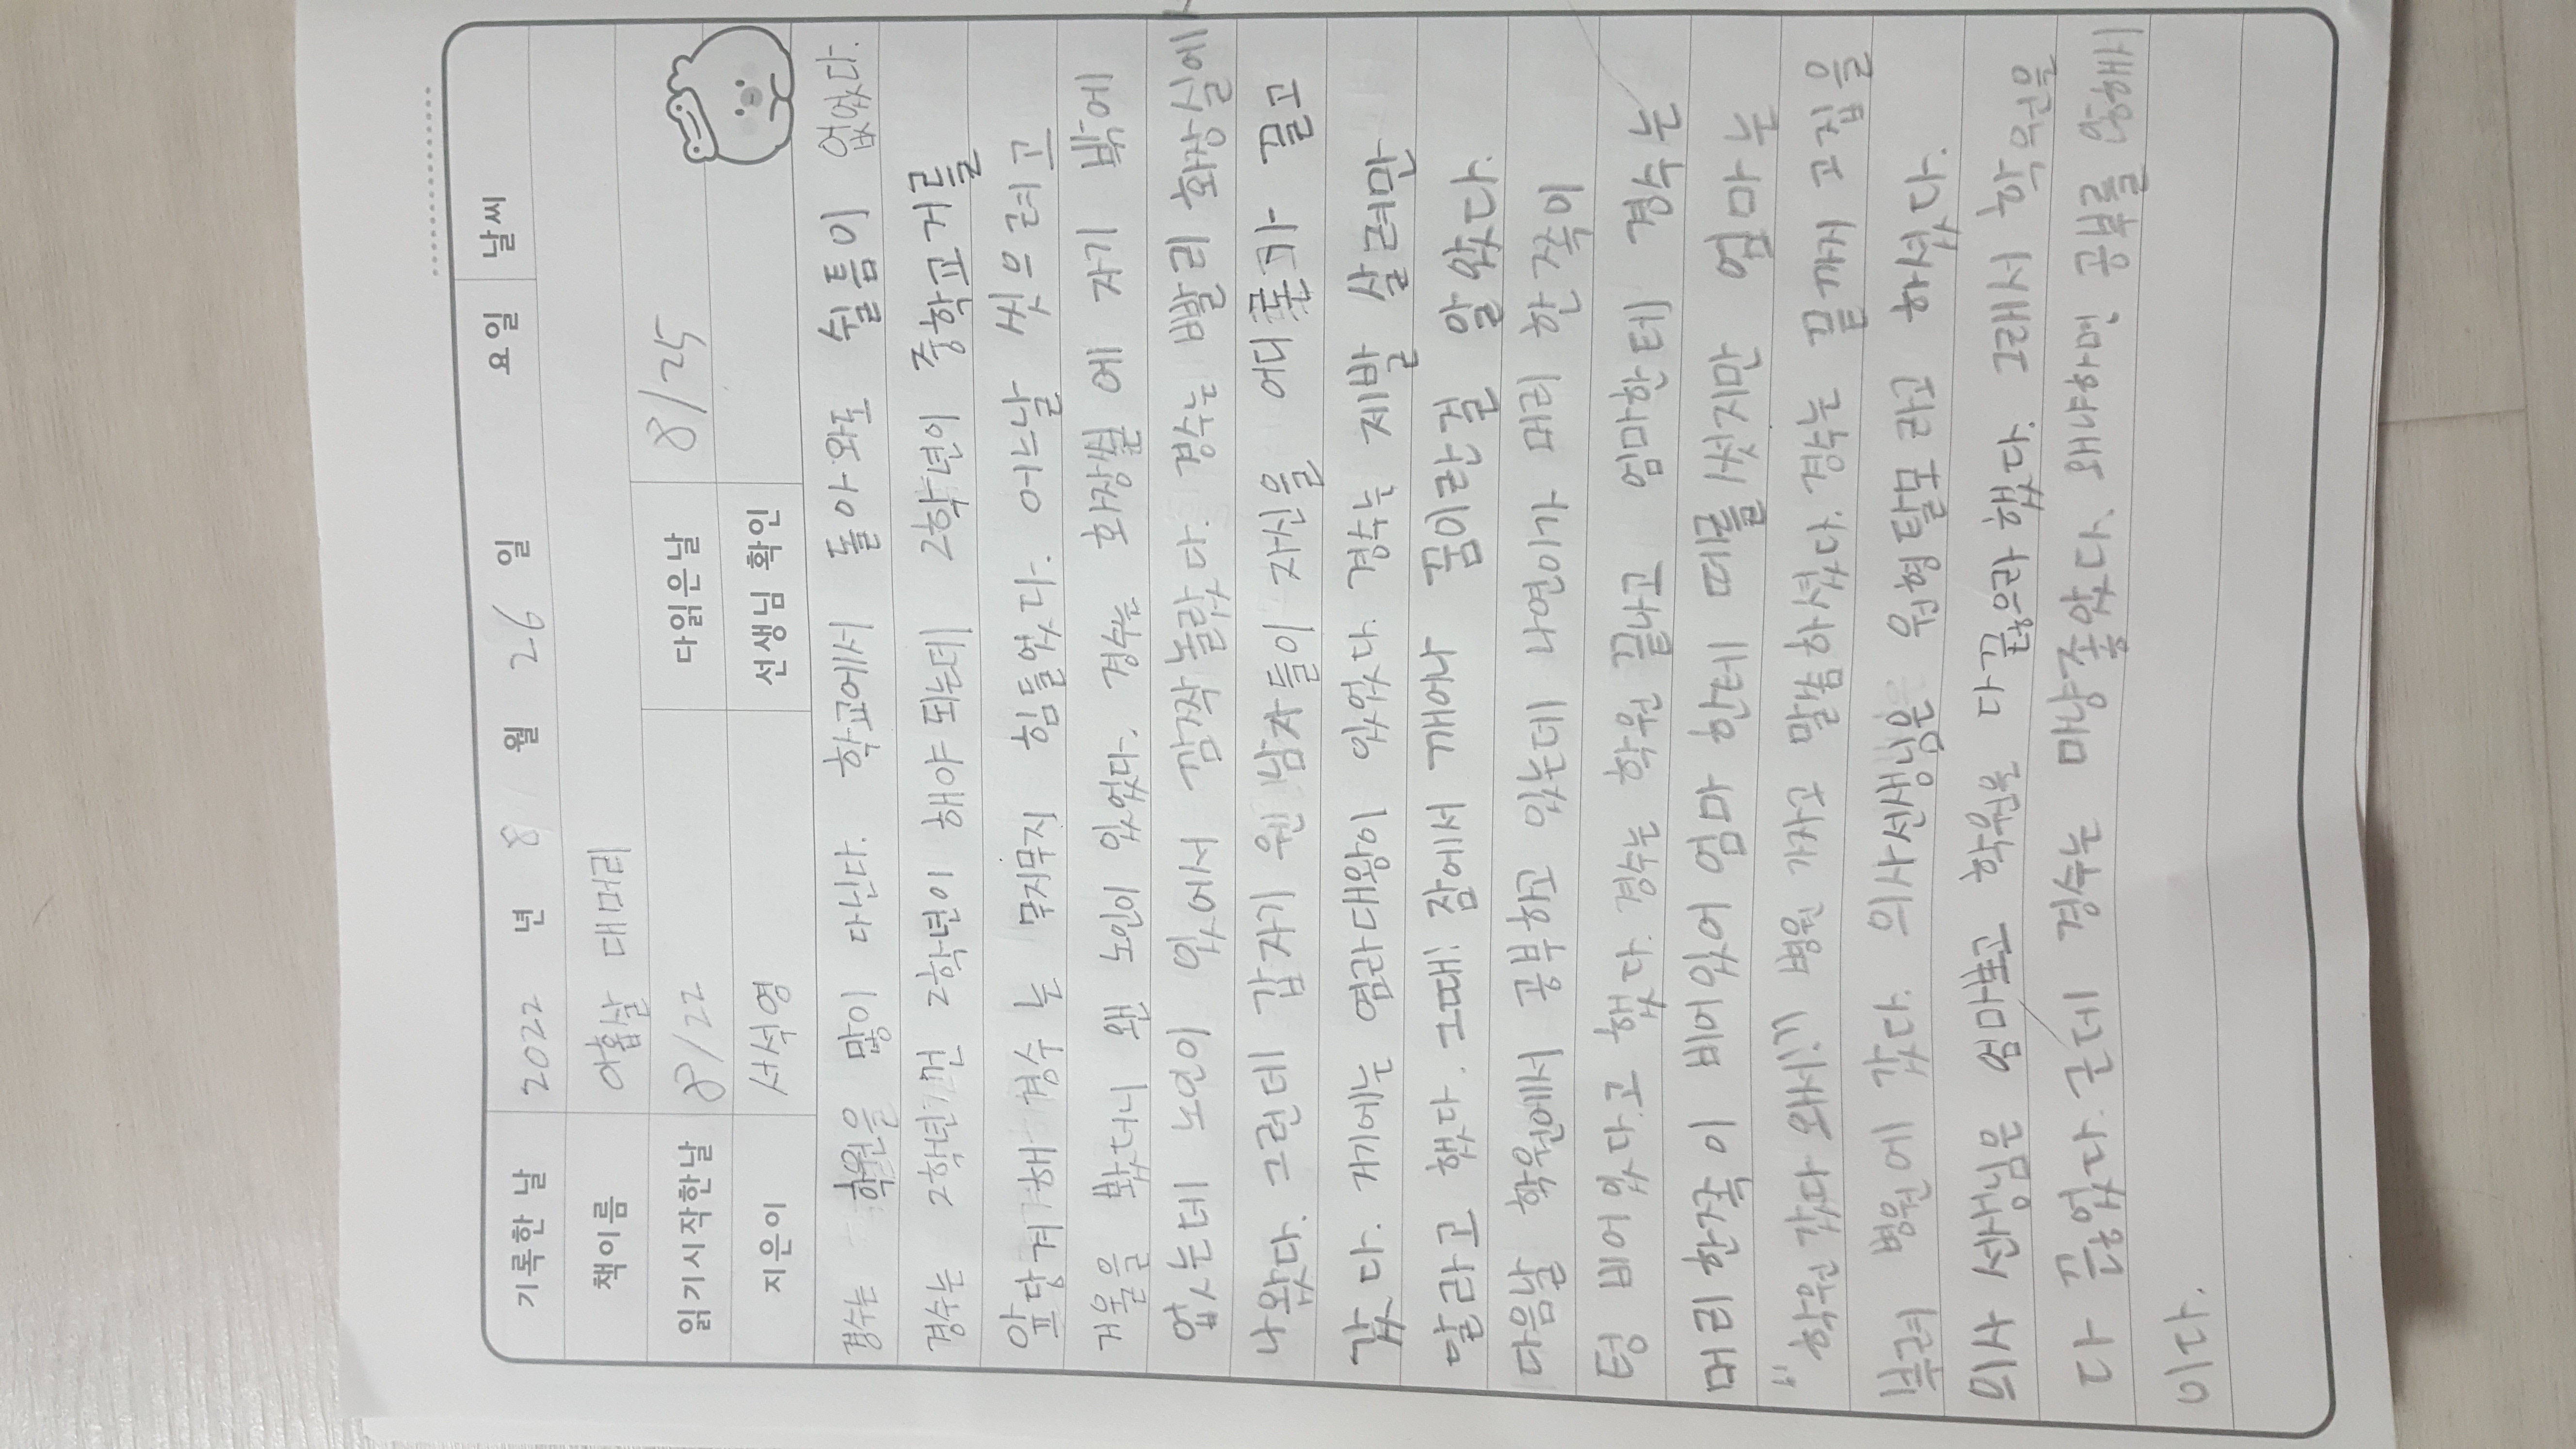 기록한 날 2022 년 8 월 26 일 요일 날씨
책이름 아홉살 대머리
읽기시작한날 8/22 다읽은날 8/25
지은이 서석영 선생님 확인
경수는 학원을 많이 다닌다. 학교에서 돌아와도 쉴틈이 없었다.
경수는 2학년껀 2학년이 해야 되는데 2학년이 중학교거를
앞당겨해 경수는 무지무지 힘들었다. 어느날 씻으려고
거울을 봤더니 왠 노인이 있었다. 경수는 화장씰에 자기 밖에
없는데 노인이 있에서 깜짝놀랐다. 경수는 빨리 화장실에서
나왔다. 그런데 갑자기 웬 남자들이 자신을 어디론가 끌고
갔다. 거기에는 염라대왕이 있었다. 경수는 제발 살려만
달라고 했다. 그때! 잠에서 깨어나 꿈이란걸 알았다.
다음날 학원에서 공부하고 있는데 나연이가 머리 한쪽이
텅 비어있다고 했다. 경수는 학원 끝나고 엄마한테 경수는
머리한쪽이 비어있어 엄마한테 떼를썻지만 엄마는
"학원 갔다 와서!" 병원 가자고 말씀하셨다. 경수는 끝까지 고집을
부려 병원에 갔다. 의사선생님은 원형탈모라고 하셨다.
의사 선생님은 엄마보고 학원을 다끊으라했다. 그래서 학원을
다 끊었다. 근데 경수는 마냥좋았다. 왜냐하면 공부를 않해서
이다.